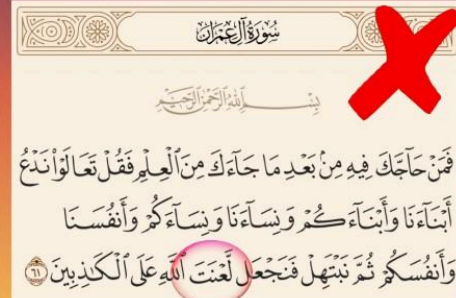 سُورَةُ آلِ عِمْرَانَ
بِسْمِ ٱللَّهِ ٱلرَّحْمَٰنِ ٱلرَّحِيمِ
فَمَنْ حَآجَّكَ فِيهِ مِنۢ بَعْدِ مَا جَآءَكَ مِنَ ٱلْعِلْمِ فَقُلْ تَعَالَوْا۟ نَدْعُ
أَبْنَآءَنَا وَأَبْنَآءَكُمْ وَنِسَآءَنَا وَنِسَآءَكُمْ وَأَنفُسَنَا
وَأَنفُسَكُمْ ثُمَّ نَبْتَهِلْ فَنَجْعَل لَّعْنَتَ ٱللَّهِ عَلَى ٱلْكَٰذِبِينَ ٦١